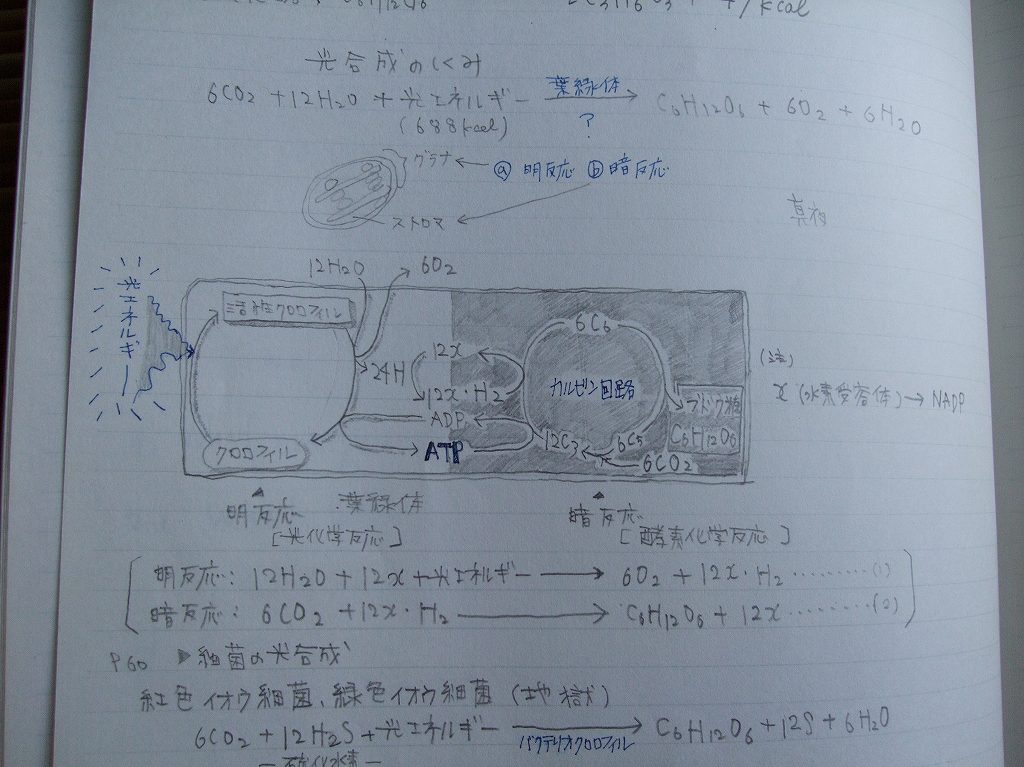 光合成のしくみ
6CO2 + 12H2O + 光エネルギー 葉緑体 → C6H12O6 + 6O2 + 6H2O
(688kcal) ?
グラナ ← ⓐ 明反応 ⓑ 暗反応
ストロマ
12H2O 6O2
光エネルギー
活性クロロフィル
24H
12x
12x・H2
ADP
ATP
クロロフィル
6C6
カルビン回路
12C3 6C5
6CO2
ブドウ糖
C6H12O6
(注)
x (水素受容体) → NADP
明反応 葉緑体 暗反応
[光化学反応] [酵素化学反応]
明反応: 12H2O + 12x + 光エネルギー → 6O2 + 12x・H2 ………(1)
暗反応: 6CO2 + 12x・H2 → C6H12O6 + 12x ………(2)
P60 ▶細菌の光合成
紅色イオウ細菌、緑色イオウ細菌 (地獄)
6CO2 + 12H2S + 光エネルギー バクテリオクロロフィル → C6H12O6 + 12S + 6H2O